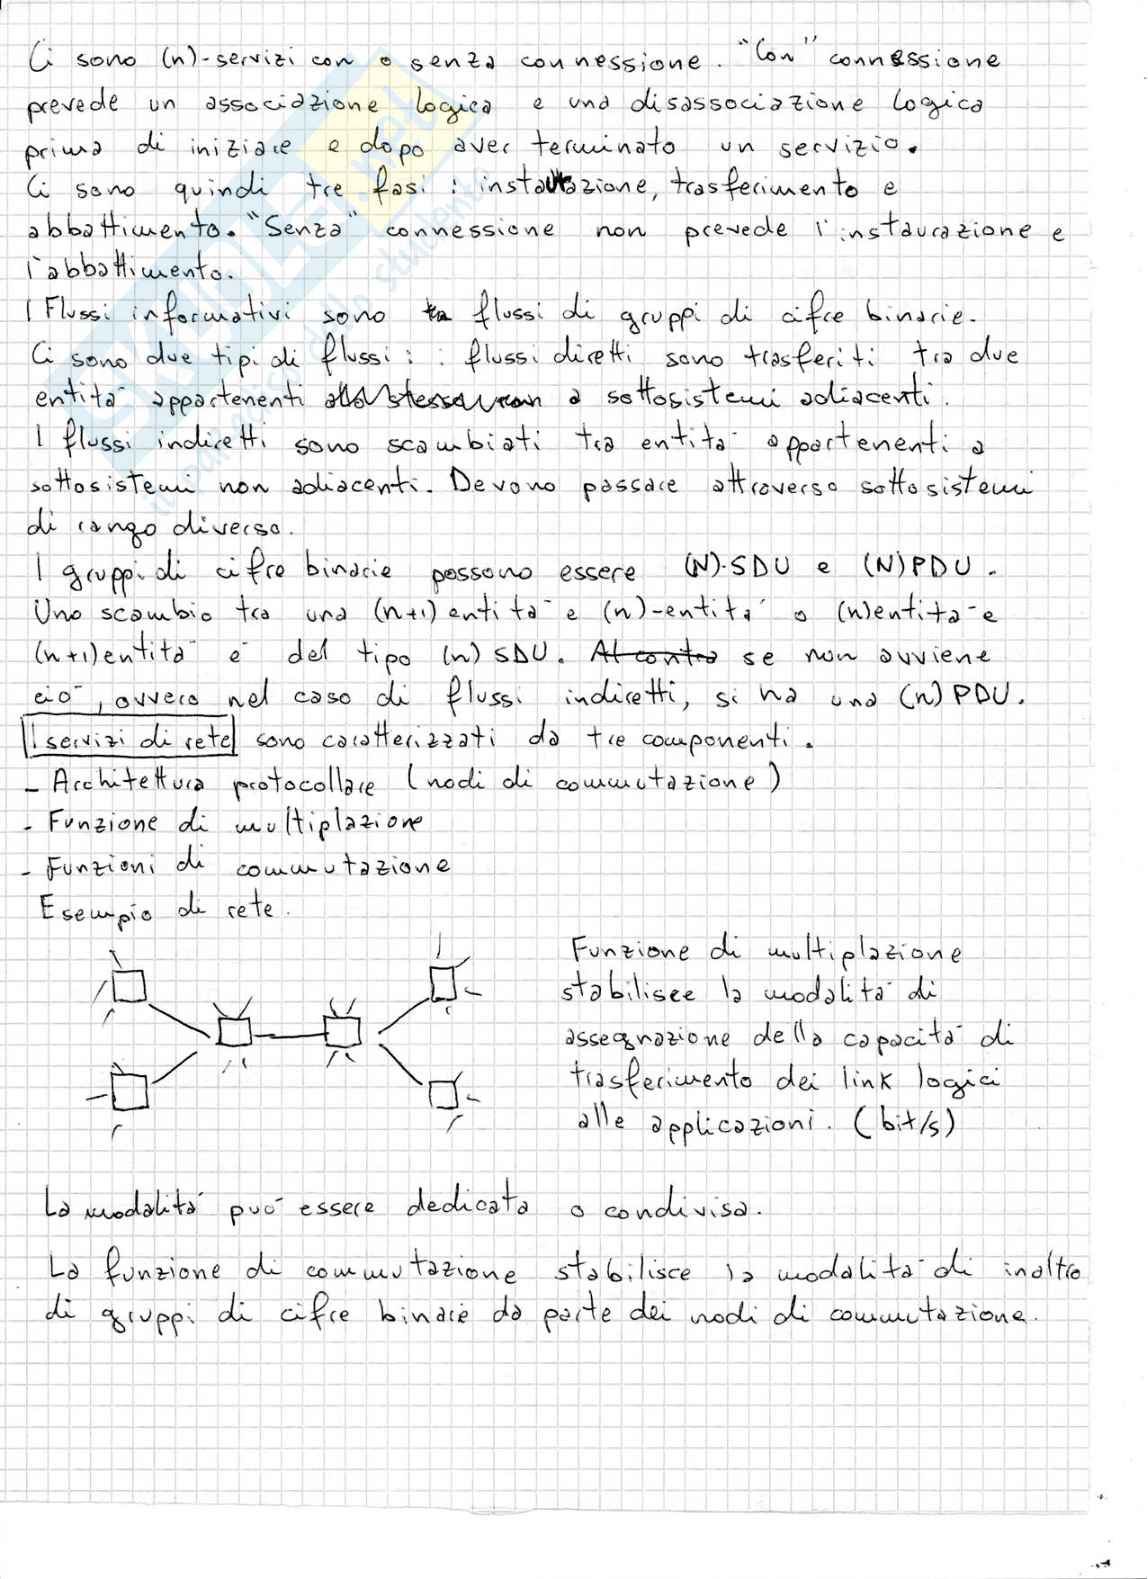 Ci sono (n)-servizi con o senza connessione. "Con" connessione
prevede un associazione logica e una disassociazione logica
prima di iniziare e dopo aver terminato un servizio.
Ci sono quindi tre fasi : instaurazione, trasferimento e
abbattimento. "Senza" connessione non prevede l'instaurazione e
l'abbattimento.
I Flussi informativi sono flussi di gruppi di cifre binarie.
Ci sono due tipi di flussi: i flussi diretti sono trasferiti tra due
entità appartenenti a sottosistemi adiacenti.
I flussi indiretti sono scambiati tra entità appartenenti a
sottosistemi non adiacenti. Devono passare attraverso sottosistemi
di rango diverso.
I gruppi di cifre binarie possono essere (N)-SDU e (N)PDU.
Uno scambio tra una (n+1)entità e (n)-entità o (n)entità e
(n+1)entità è del tipo (n)SDU. Al contra se non avviene
ciò, ovvero nel caso di flussi indiretti, si ha una (n)PDU.
I servizi di rete sono caratterizzati da tre componenti.
- Architettura protocollare (nodi di commutazione)
- Funzione di multiplazione
- Funzioni di commutazione
Esempio di rete.
Funzione di multiplazione
stabilisce la modalità di
assegnazione della capacità di
trasferimento dei link logici
alle applicazioni. (bit/s)
La modalità può essere dedicata o condivisa.
La funzione di commutazione stabilisce la modalità di inoltro
di gruppi di cifre binarie da parte dei nodi di commutazione.
SKUOLA.net